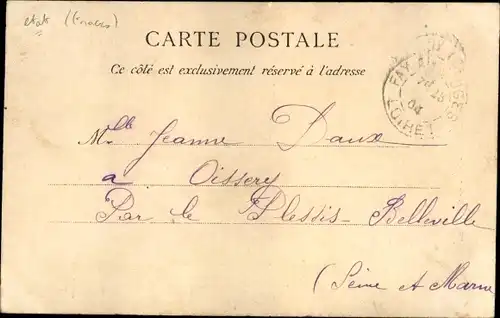 CARTE POSTALE
Ce côté est exclusivement réservé à l'adresse
Mlle Jeanne Daux
a Oissery
Par le Plessis-Bellville
(Seine et Marne
FAY AUX LOGES
04
LOIRET